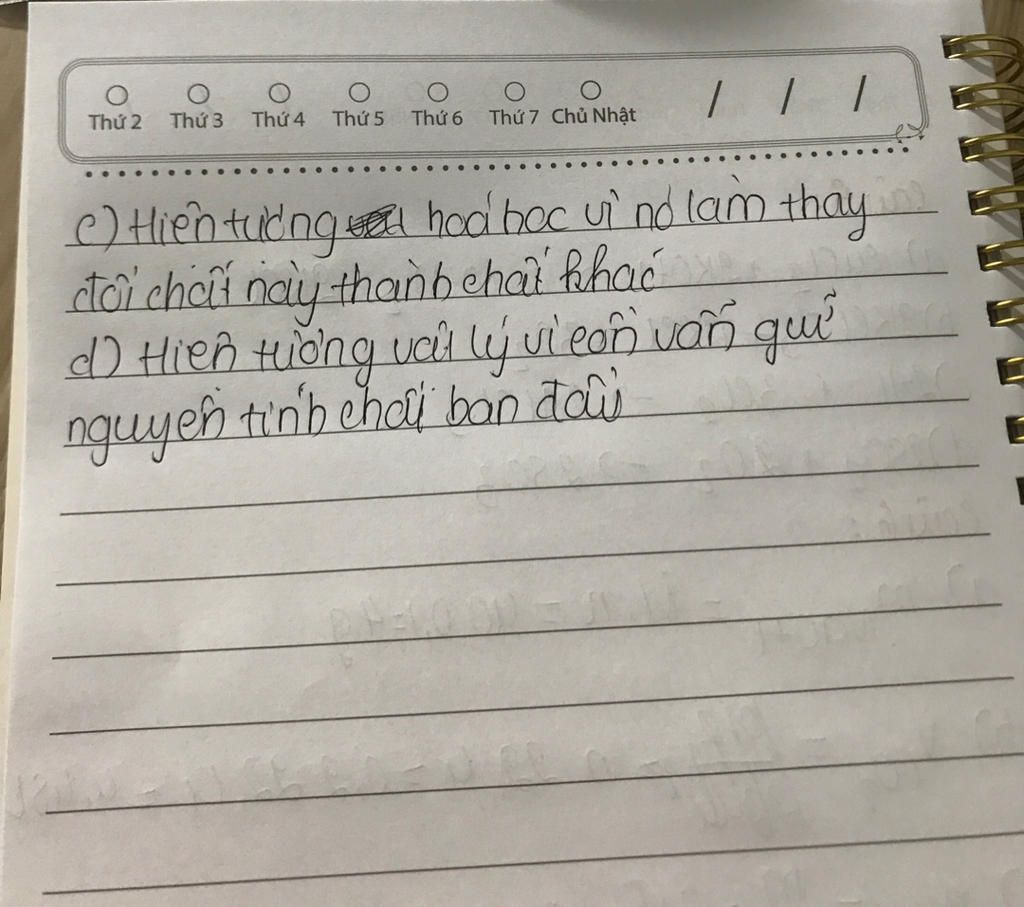 Thứ 2 Thứ 3 Thứ 4 Thứ 5 Thứ 6 Thứ 7 Chủ Nhật / / /
c) Hiện tượng hoá học vì nó làm thay
đổi chất này thành chất khác
d) Hiện tượng vật lý vì cồn vẫn giữ
nguyên tính chất ban đầu